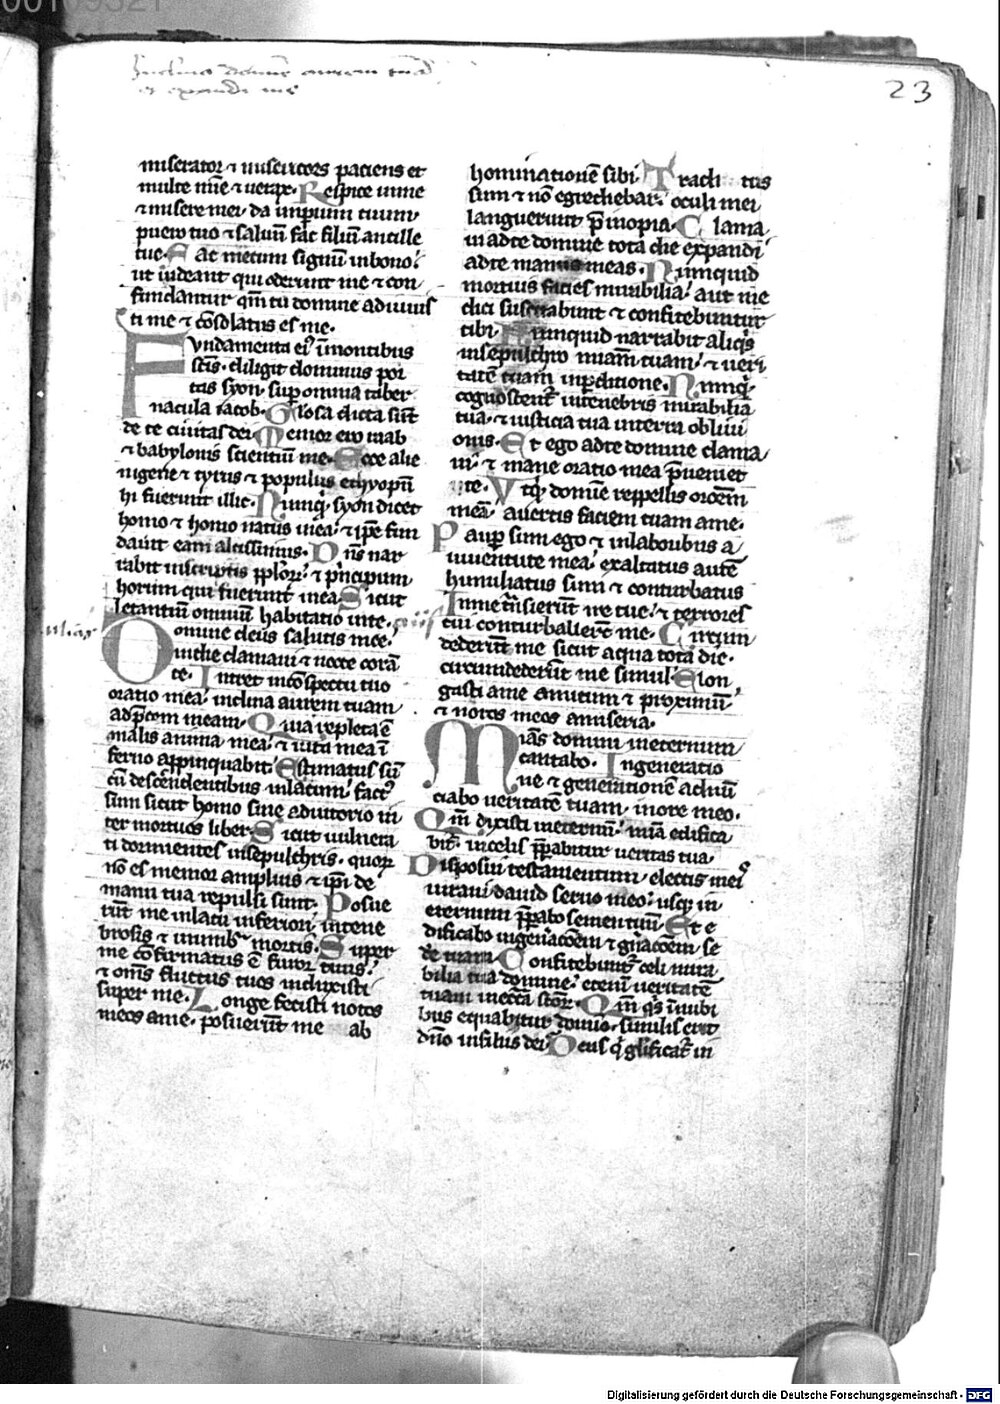 00109321
Inclina domine aurem tuam
et exaudi me
23
miserator ⁊ misericors paciens et
multe mie ⁊ verax. Respice inme
⁊ misere mei. da imperium tuum
puero tuo ⁊ saluū fac filiū ancille
tue. Fac mecum signū inbono.
ut uideant qui oderunt me ⁊ con
fundantur qm̄ tu domine adiuuis
ti me ⁊ cōsolatus es me.
Fundamenta eiꝰ īmontibus
sc̄tis. diligit dominus por
tas syon. sup omnia taber
nacula iacob. Glosa dicta sūt
de te ciuitas dei. Memor ero raab
⁊ babylonis scientiū me. Ecce alie
nigene ⁊ tyrus ⁊ populus ethyopū
hi fuerunt illic. Nunq̄ syon dicet
homo ⁊ homo natus inea. ⁊ ip̄e fun
dauit eam altissimus. Dn̄s nar
rabit inscriptis pp̄loꝝ. ⁊ p̄ncipum
horum qui fuerunt inea. Sicut
letantiū omniū habitatio inte.
Domine deus salutis mee.
indie clamaui ⁊ nocte corā
te. Intret incōspectu tuo
oratio mea. inclina aurem tuam
adp̄cem meam. Quia repleta ē
malis anima mea. ⁊ uita mea ī
ferno app̄inquabit. Estimatus sū
cū descendentibus inlacum. factꝰ
sum sicut homo sine adiutorio in
ter mortuos liber. Sicut uulnera
ti dormientes insepulchris. quoꝝ
nō es memor amplius ⁊ ip̄i de
manu tua repulsi sunt. Posue
rūt me inlacu inferiori. intene
brosis ⁊ inumbͣ mortis. Super
me cōfirmatus ē furor tuus.
⁊ om̄s fluctus tuos induxisti
super me. Longe fecisti notos
meos ame. posuerūt me ab
hominationē sibi. Traditus
sum ⁊ nō egrediebar. oculi mei
languerunt p̄inopia. Clama
ui adte domine tota die expandi
adte manus meas. Numquid
mortuis facies mirabilia. aut me
dici suscitabunt ⁊ confitebuntur
tibi. Nunquid narrabit aliq̄s
insepulchro miām tuam. ⁊ ueri
tatē tuam inp̄ditione. Nunq̄
cognoscent᷑ intenebris mirabilia
tua. ⁊ iusticia tua interra obliui
onis. Et ego adte domine clama
ui. ⁊ mane oratio mea p̄ueniet
te. Vtq̄ domīe reppellis oroēm
meā. auertis faciem tuam ame.
Paup sum ego ⁊ inlaboribus a
iuuentute mea. exaltatus autē
humiliatus sum ⁊ conturbatus
Inme trāsierūt ire tue. ⁊ terrores
tui conturbauerūt me. Circum
dederūt me sicut aqua tota die.
circumdederūt me simul. Elon
gasti ame amicum ⁊ proximū.
⁊ notos meos amiseria.
Miās domini ineternum
cantabo. Ingeneratio
ne ⁊ generationē adnū
ciabo ueritatē tuam. inore meo.
Qm̄ dixisti ineternū. miā edifica
bit̄. incelis p̄parabitur ueritas tua.
Disposui testamentum electis meiꝰ
iuraui dauid seruo meo. usq; in
eternum p̄parabo semen tuū. Et e
dificabo ingen̄acōem ⁊ gn̄acōem se
dē tuam. Confitebunt᷑ celi mira
bilia tua domine. etenī ueritatē
tuam ineccā sc̄oꝝ. Qm̄ q̄s īnubi
bus equabitur domīo. similis erit
dn̄o infiliis dei. Deus q̄ glīficat᷑ in
Digitalisierung gefördert durch die Deutsche Forschungsgemeinschaft - DFG